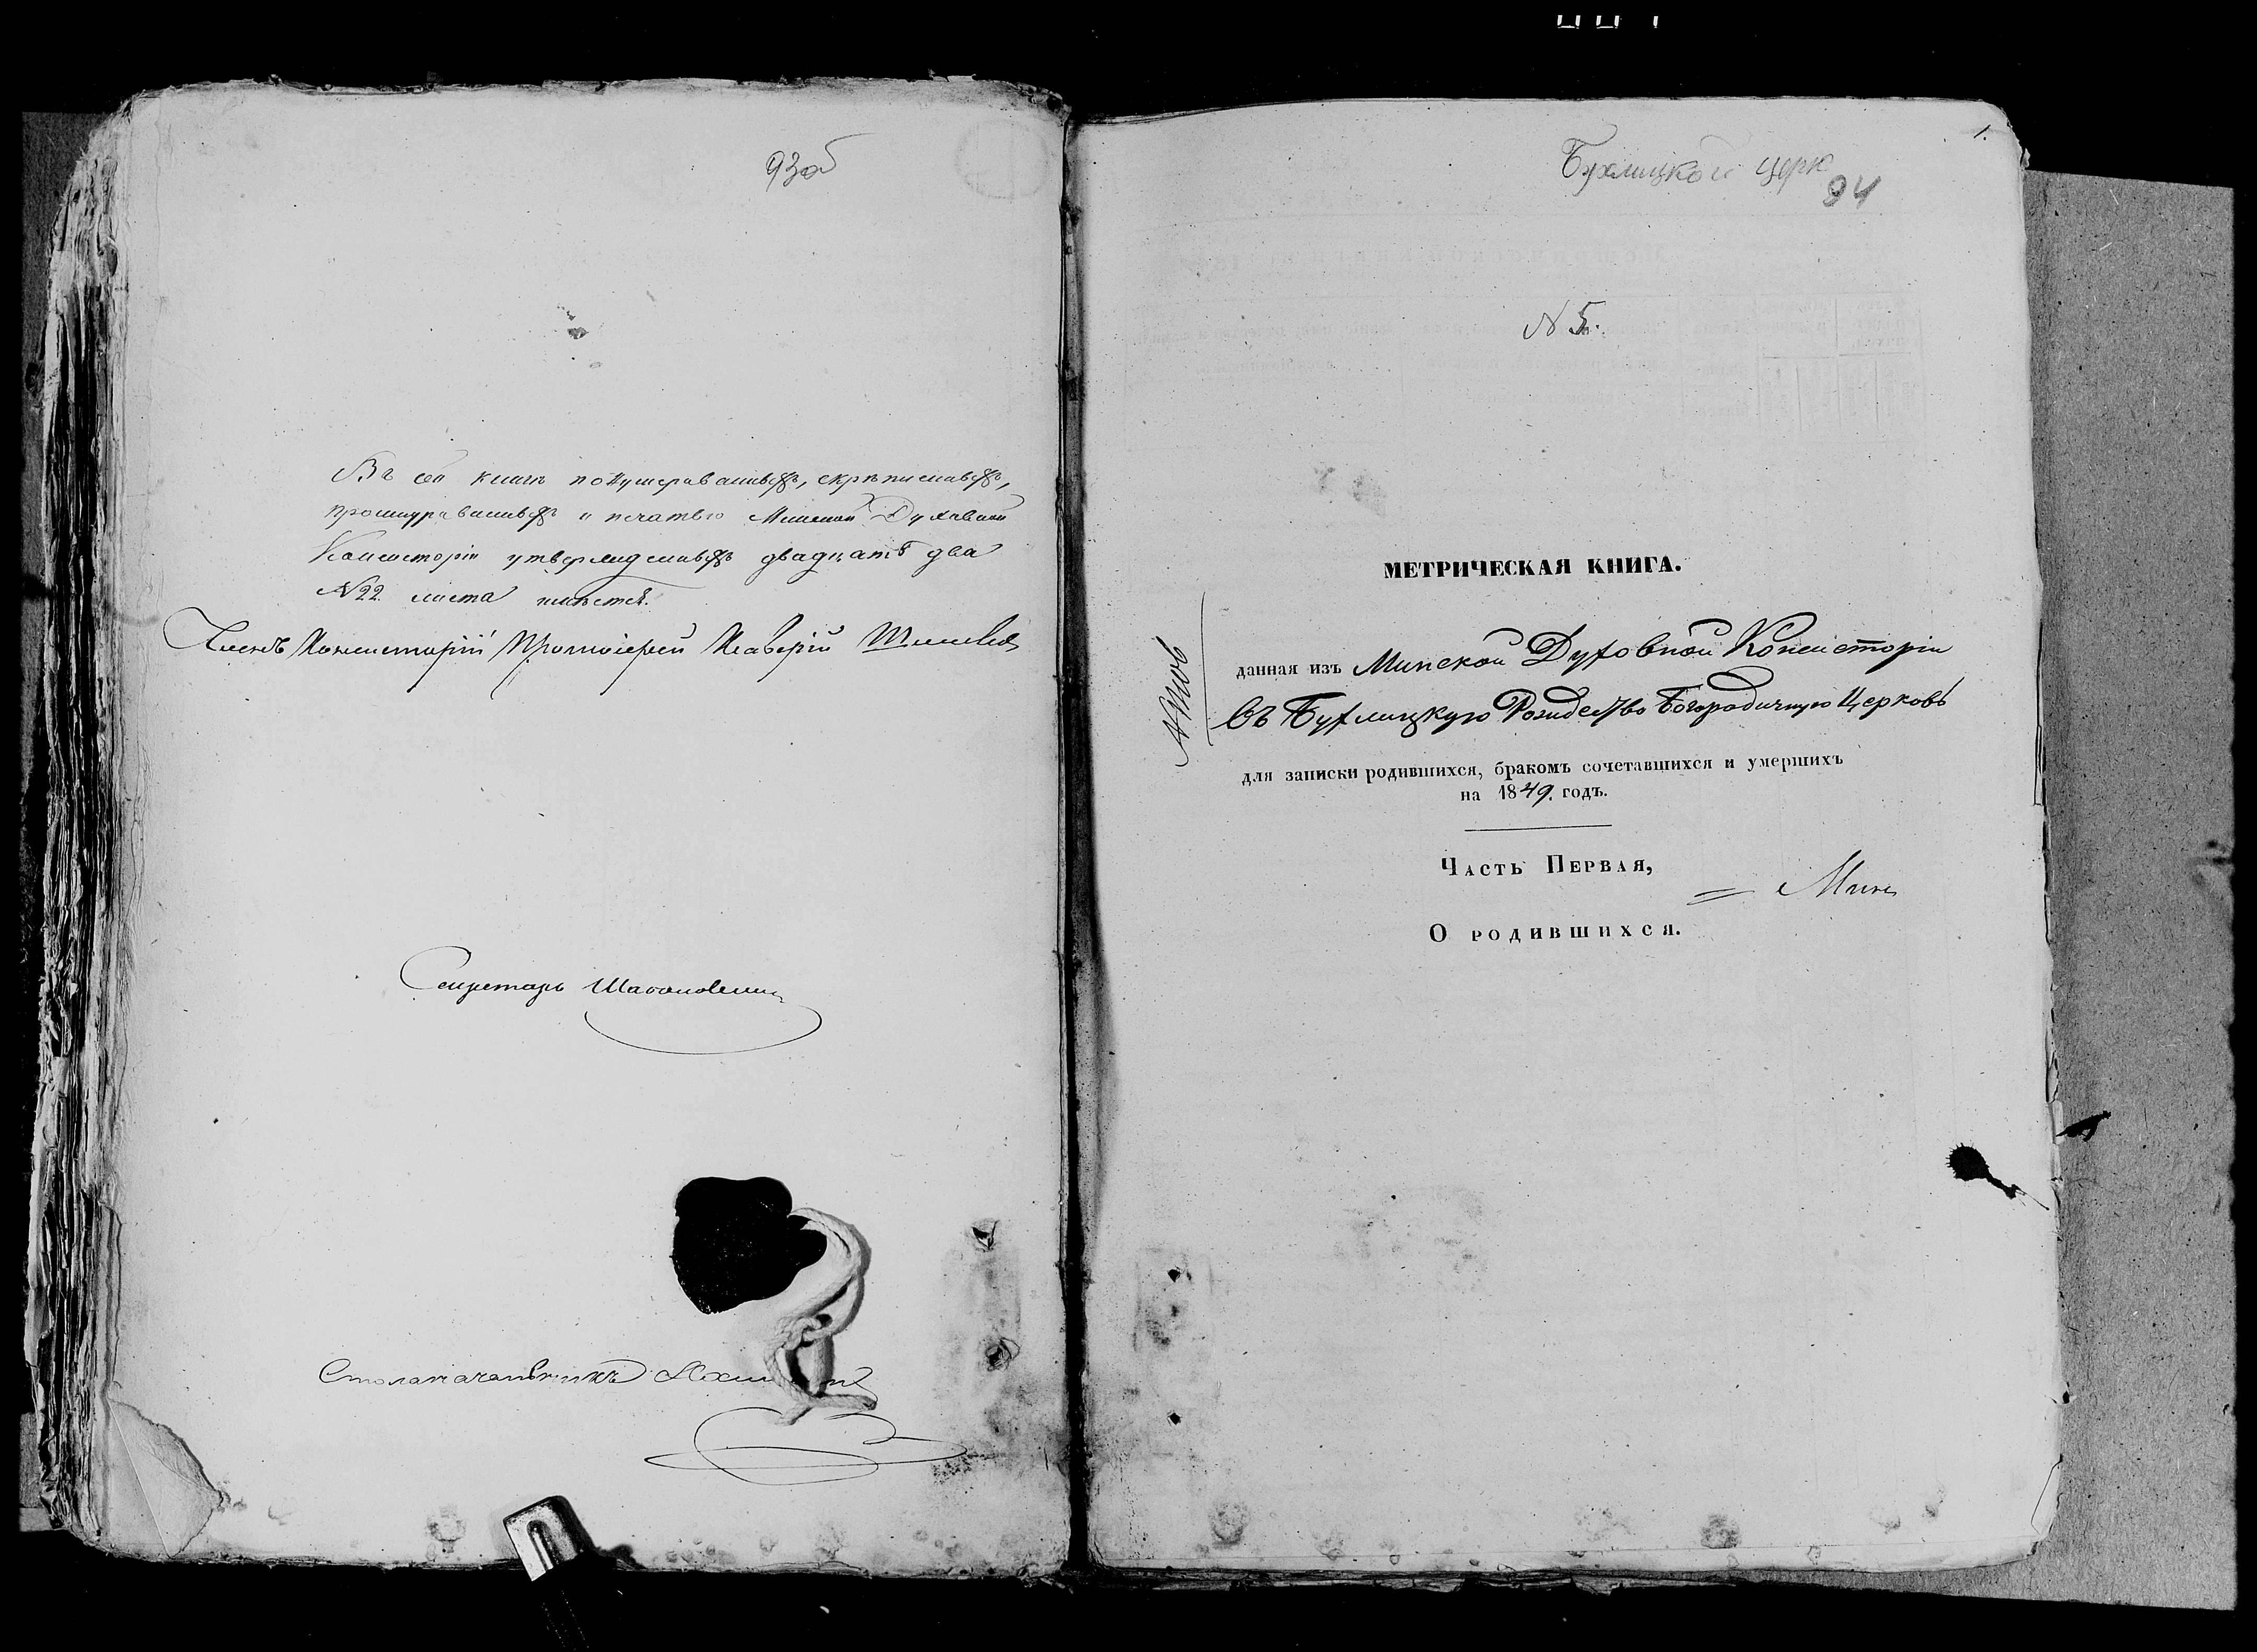 93об
Въ сей книгѣ понумерованныхъ, скрѣпленныхъ,
прошнурованныхъ и печатью Минской Духовной
Консисторіи утвержденныхъ двадцать два
N 22. листа имѣется.
Членъ Консисторіи Протоіерей
Секретарь
Столоначальникъ
1.
Бухлицкой церк
94
N 5.
МЕТРИЧЕСКАЯ КНИГА.
данная изъ Минской Духовной Консисторіи
въ Бухлицкую Рождество Богородичную Церковь
для записки родившихся, бракомъ сочетавшихся и умершихъ
на 1849. годъ.
Часть Первая,
О родившихся.